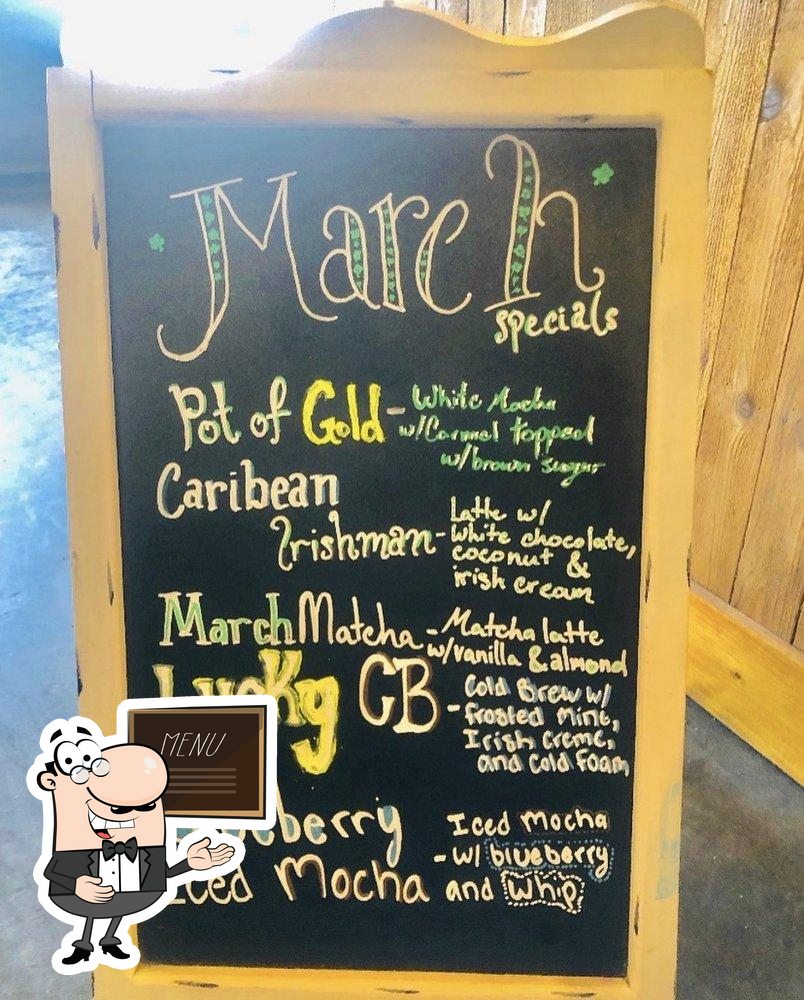 March
specials
Pot of Gold - White Mocha
w/Carmel topped
w/brown sugar
Caribean
Irishman - Latte w/
white chocolate,
coconut &
irish cream
March Matcha - Matcha latte
w/vanilla & almond
Lucky CB - Cold Brew w/
frosted mint,
Irish creme,
and cold foam
MENU
Iced Mocha
- w/ blueberry
Iced Mocha and whip